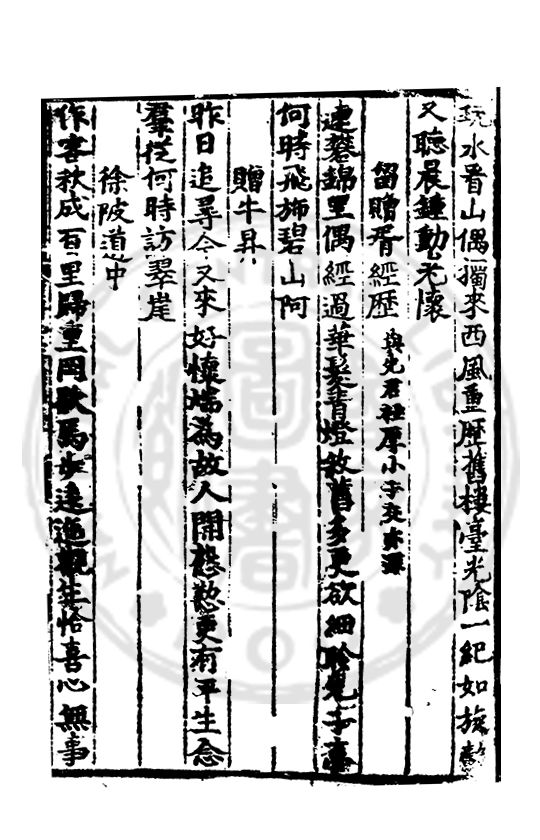 玩水看山偶獨來西風重歷舊樓臺光陰一紀如旋
又聽晨鍾動老懷
留贈胥經歷 與先君組厚小子交亦深
連鑣錦里偶經過華髮青燈敘舊多更欲細聆兒子事
何時飛斾碧山阿
贈牛昇
昨日追尋今又來好懷端為故人開慇懃更有平生念
羣從何時訪翠崖
徐陂道中
作客秋成百里歸重岡馬步逶遲觀生恰喜心無事